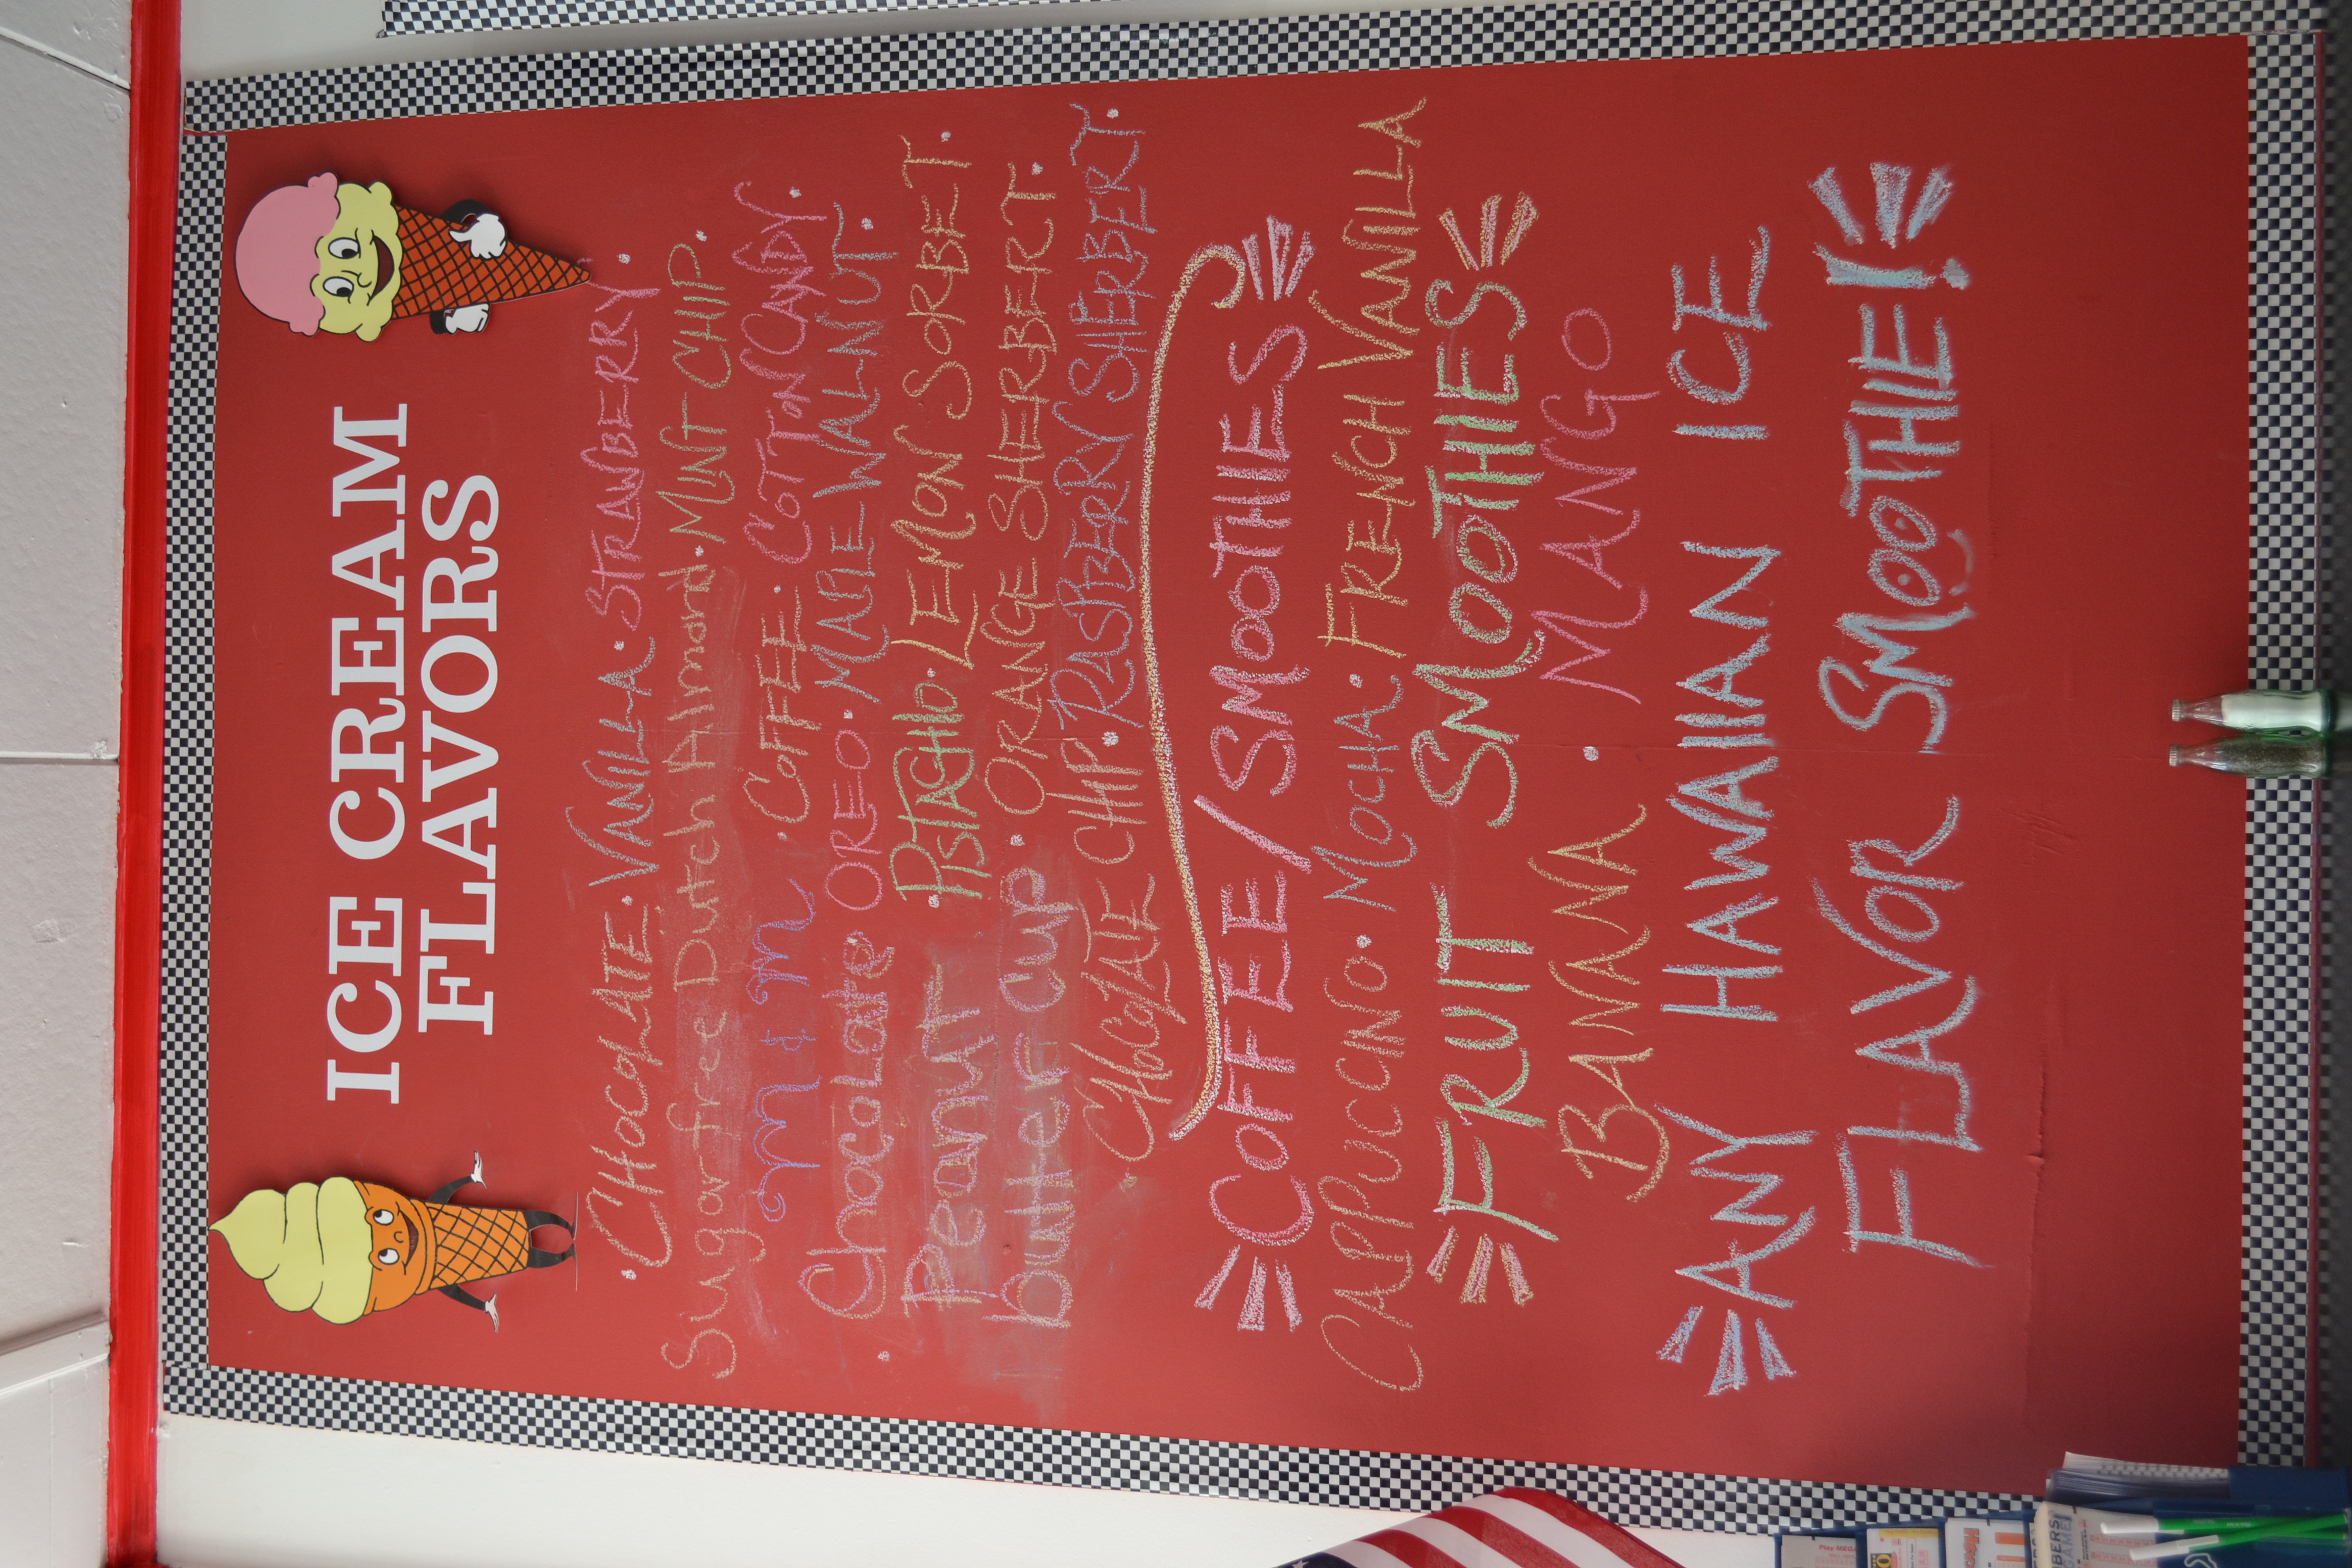 ICE CREAM
FLAVORS
• CHOCOLATE • VANILLA • STRAWBERRY •
Sugar free Dutch Almond • MINT CHIP •
M & M • COFFEE • COTTON CANDY •
• Chocolate OREO • MAPLE WALNUT •
Peanut • PISTACHIO • LEMON SORBET •
butter cup • ORANGE SHERBERT •
CHOCOLATE CHIP • RASPBERRY SHERBERT •
COFFEE/SMOOTHIES
CAPPUCCINO • MOCHA • FRENCH VANILLA
FRUIT SMOOTHIES
BANANA • MANGO
ANY HAWAIIAN ICE
FLAVOR SMOOTHIE!